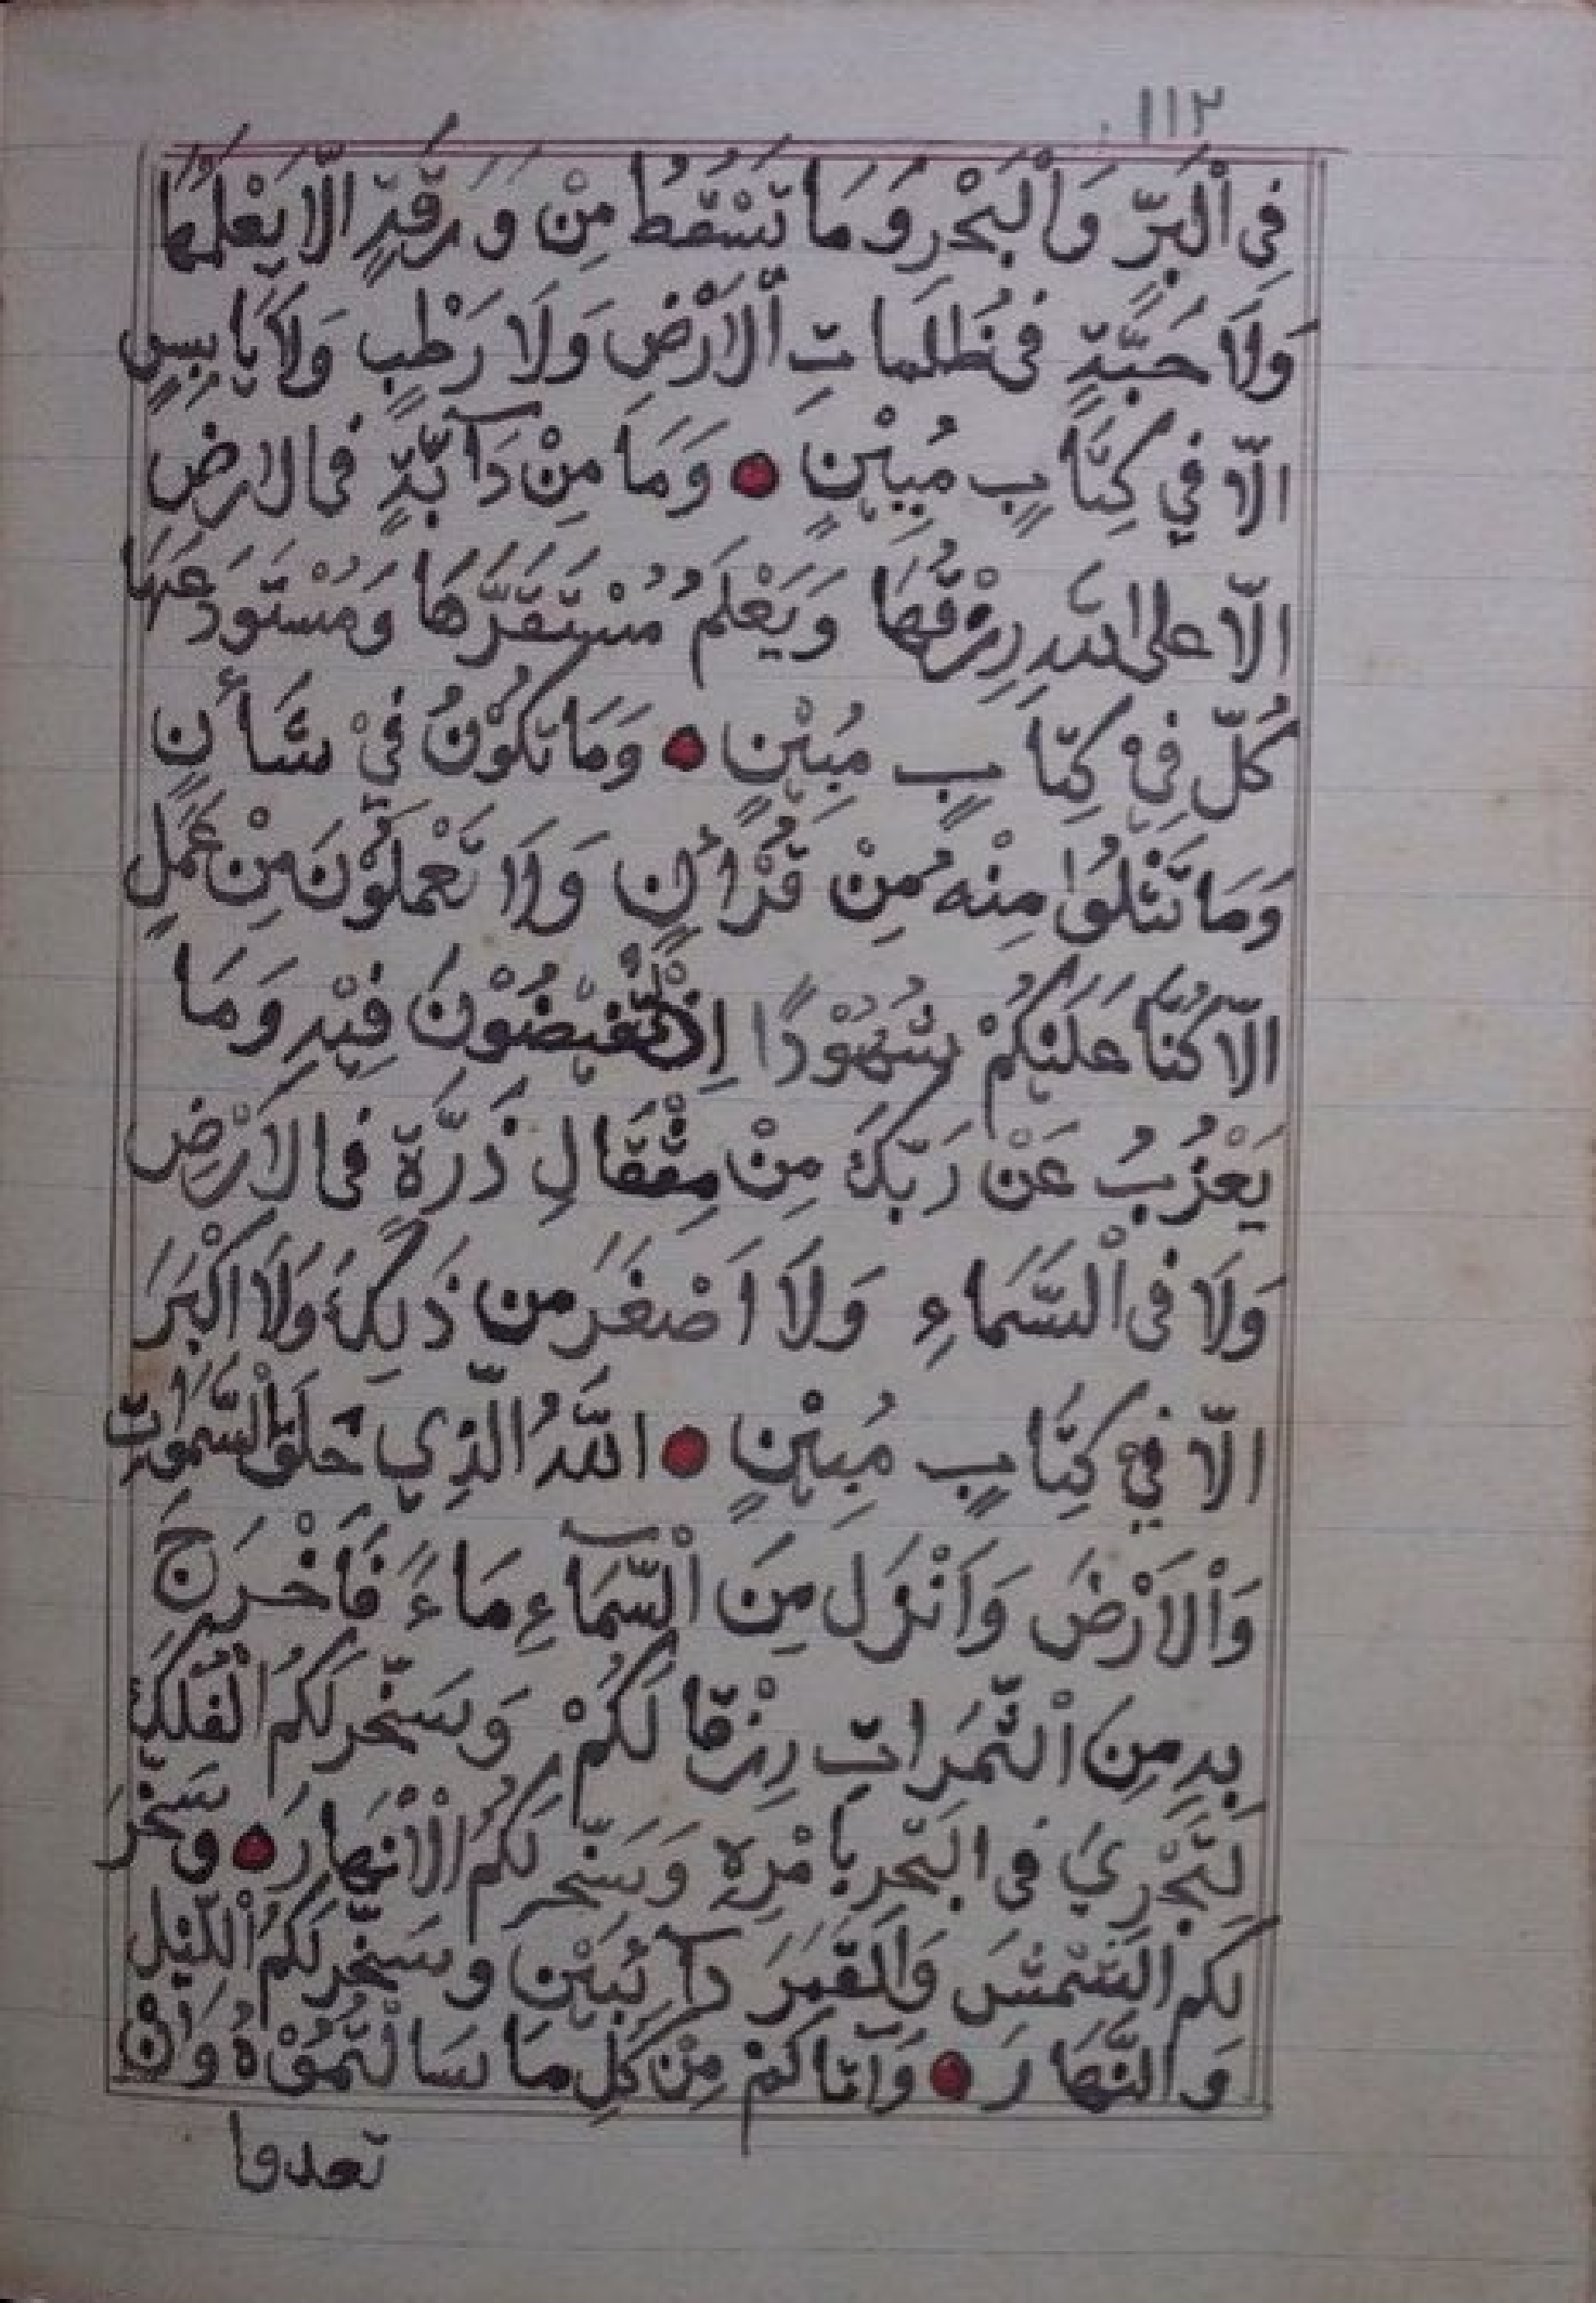 ١١٢
فِى اْلبَرِّ وَاْلبَحْرِ وَمَا تَسْقُطُ مِنْ وَرَقَةٍ الّا يَعْلَمُهَا
وَلَا حَبَّةٍ فى ظُلُمَاتِ اْلاَرْضِ وَلَا رَطْبٍ وَلَا يَابِسٍ
الّا فِي كِتَابٍ مُبِيْنٍ وَمَا مِنْ دَآبَّةٍ فى الارضِ
الّا على اللهِ رِزْقُهَا وَيَعْلَمُ مُسْتَقَرَّهَا وَمُسْتَوْدَعَهَا
كُلّ فِيْ كِتَابٍ مُبِيْنٍ وَمَا تَكُوْنُ فيْ شَأنٍ
وَمَا تَتْلُوا مِنْهُ مِنْ قُرْأنٍ وَلَا تَعْمَلُوْنَ مِنْ عَمَلٍ
الّا كُنَّا عَلَيْكُمْ شُهُوْدًا اِذْ تُفِيْضُوْنَ فِيْهِ وَمَا
يَعْزُبُ عَنْ رَبِّكَ مِنْ مِثْقَالِ ذَرَّةٍ فى الاَرْضِ
وَلَا فى اْلسَّمَاءِ وَلَا اَصْغَرَ من ذَلِكَ وَلَا اَكْبَرَ
الّا فِيْ كِتَابٍ مُبِيْنٍ اللّهُ الّذِي خَلَقَ السَّمَوَاتِ
وَاْلاَرْضَ وَاَنْزَلَ مِنَ اْلسَّمَآءِ مَاءً فَاَخْرَجَ
بِهِ مِنَ اْلثَّمَرَاتِ رِزْقا لَكُمْ وَسَخَّرَ لَكُمُ الْفُلْكَ
لِتَجْرِيَ فى البَحْرِ بِاَمْرِهِ وَسَخَّرَ لَكُمُ الْاَنْهَارَ وسَخَّرَ
لَكم الشَّمْسَ وَالقَمَرَ دَآئِبَيْنِ وسَخَّرَ لَكمُ الْلَّيْلَ
وَالنَّهَارَ وَآتاكُمْ مِنْ كُلِ مَا سَالْتُمُوْهُ وَاِنْ
تعدوا